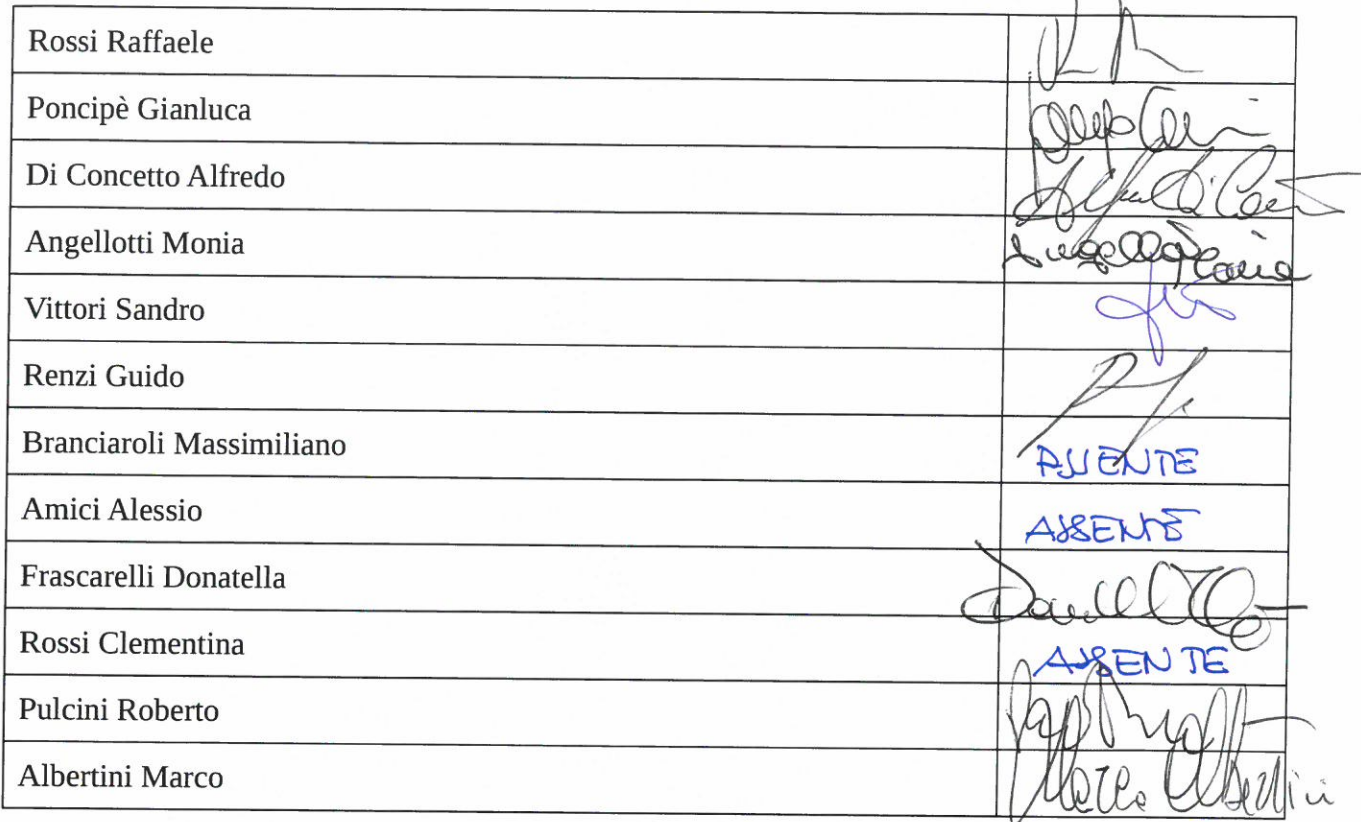 Rossi Raffaele
Poncipè Gianluca
Di Concetto Alfredo
Angellotti Monia
Vittori Sandro
Renzi Guido
Branciaroli Massimiliano ASSENTE
Amici Alessio ASSENTE
Frascarelli Donatella
Rossi Clementina ASSENTE
Pulcini Roberto
Albertini Marco Marco Albertini